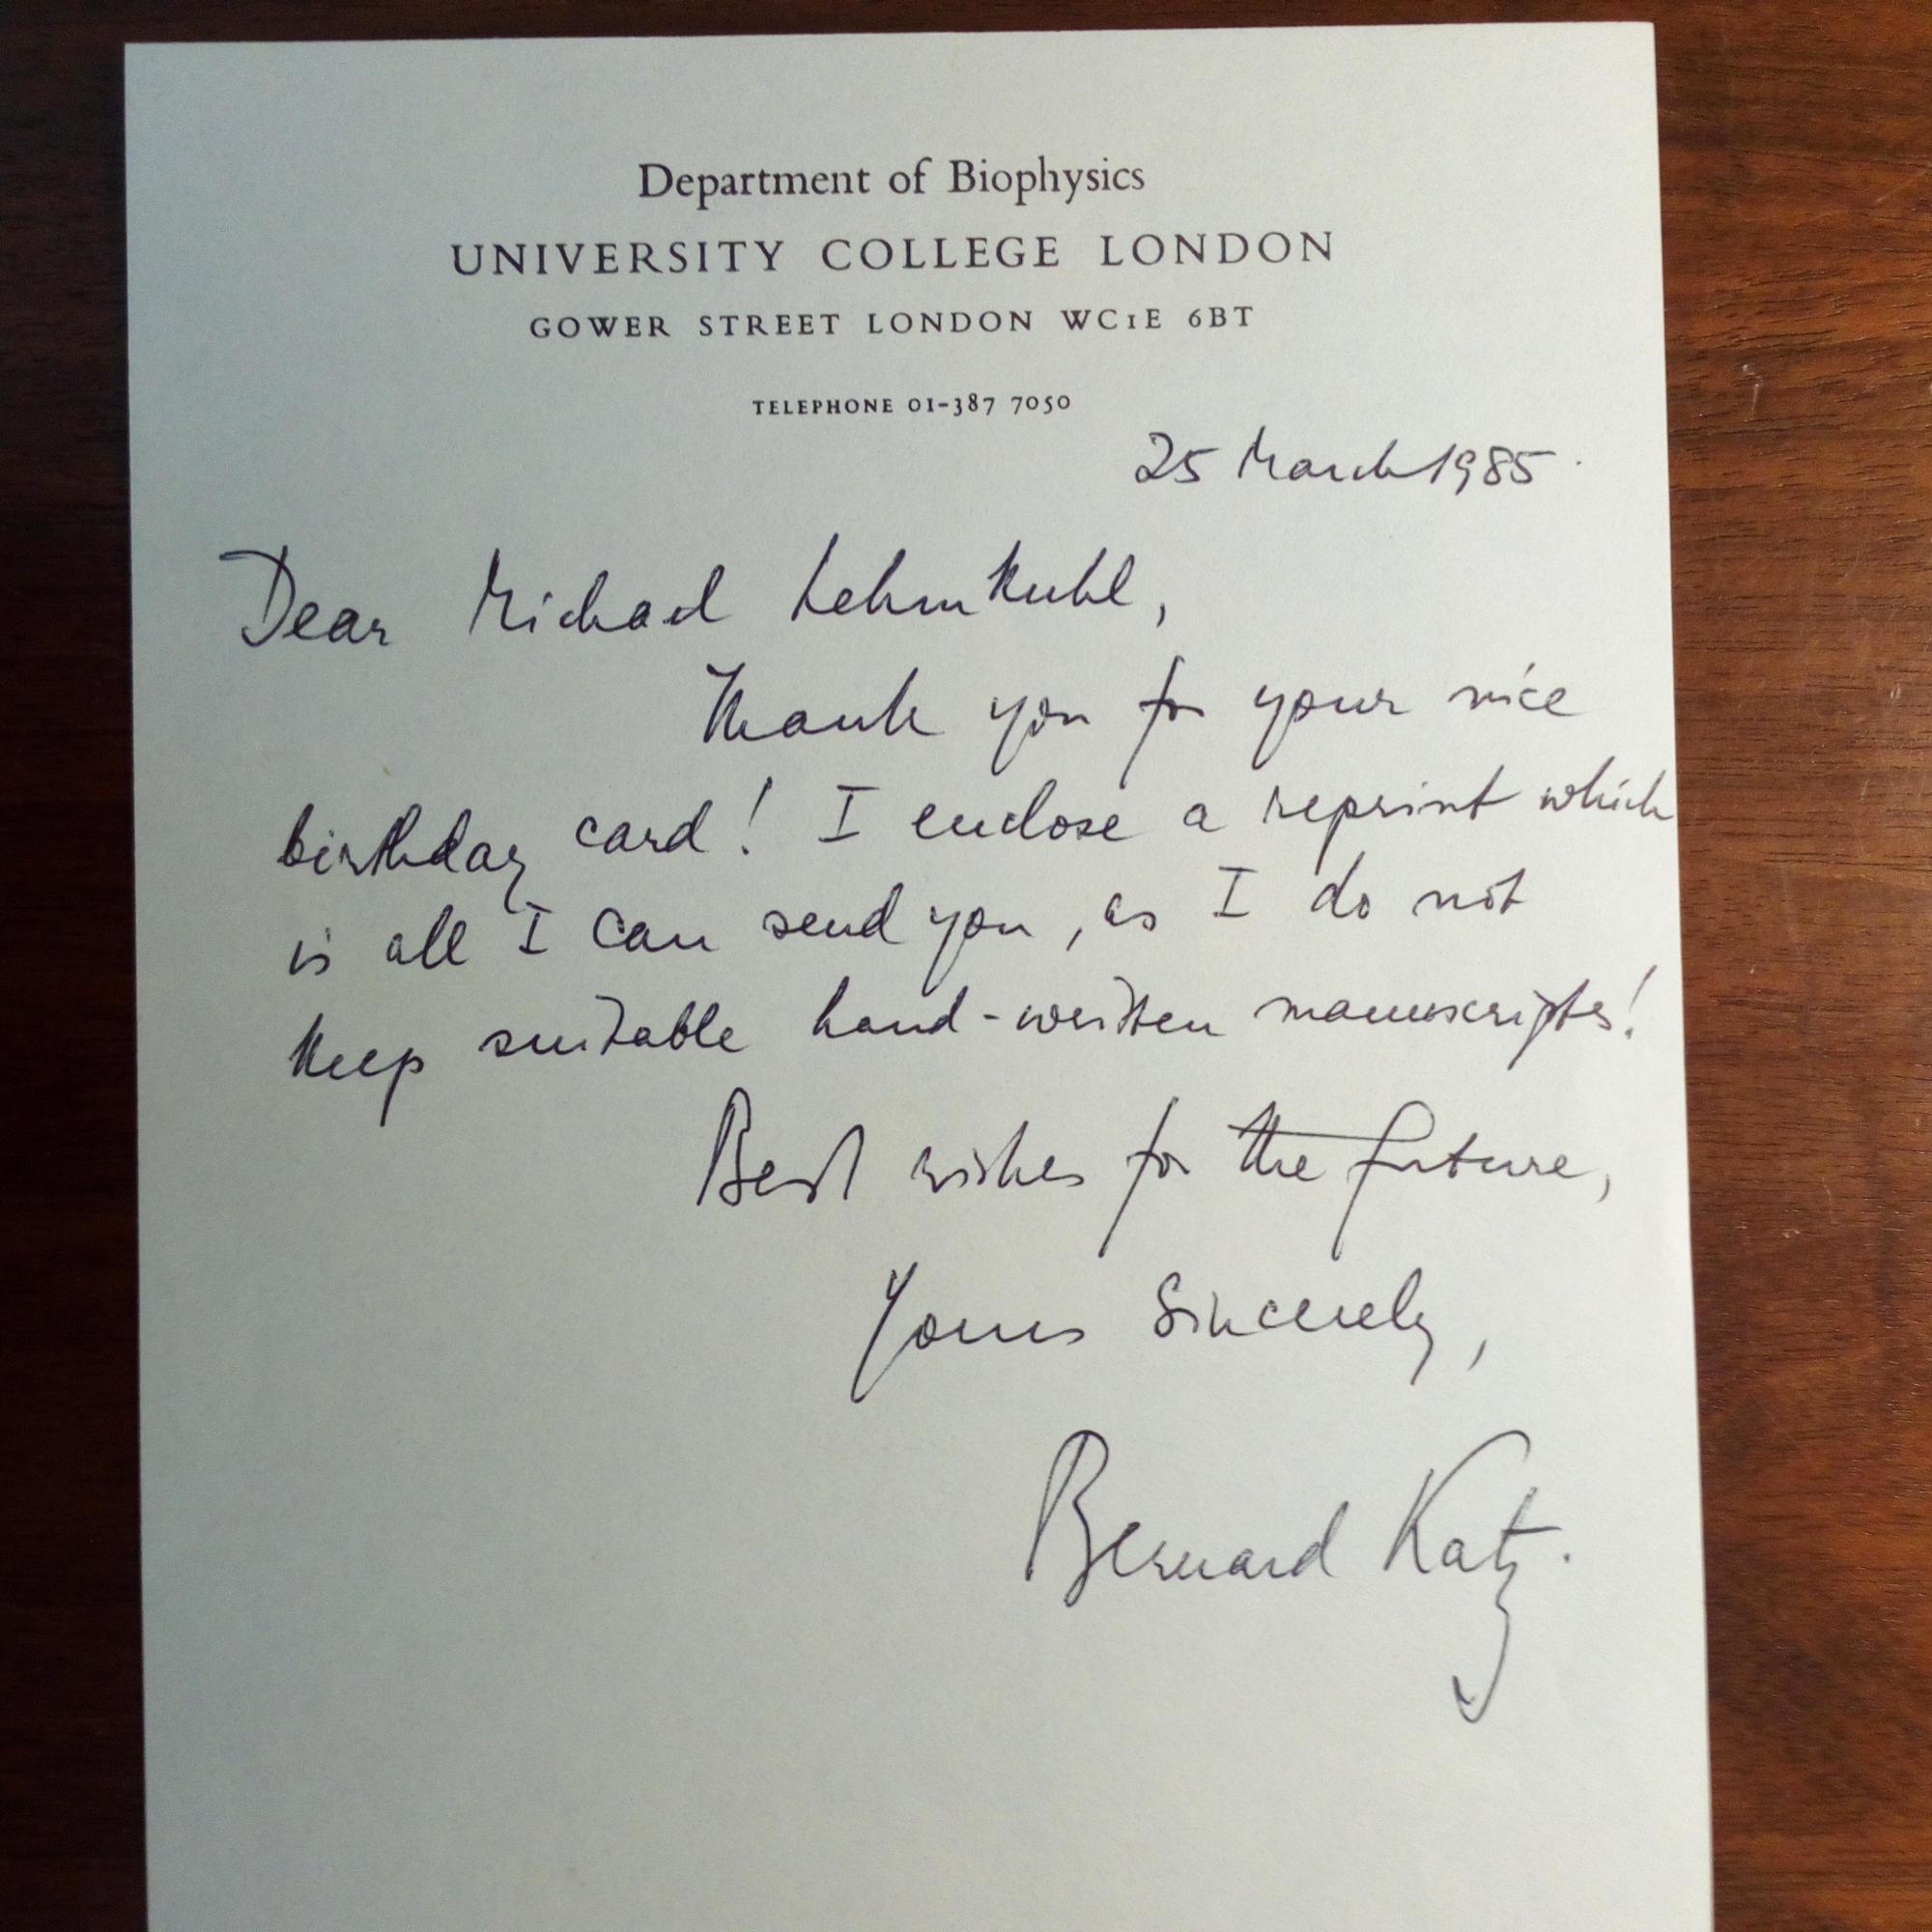 Department of Biophysics
UNIVERSITY COLLEGE LONDON
GOWER STREET LONDON WC1E 6BT
TELEPHONE 01-387 7050
25 March 1985.
Dear Michael Lehmkuhl,
Thank you for your nice
birthday card! I enclose a reprint which
is all I can send you, as I do not
keep suitable hand-written manuscripts!
Best wishes for the future,
Yours Sincerely,
Bernard Katz.